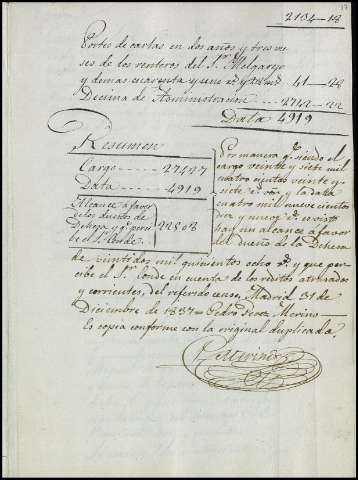 2134-18
Portes de cartas en dos años y tres me-
ses de los renteros del Sr. Melgarejo
y demas cuarenta y uno rs. y 28 ms. 41-28
Decima de Administracion ---- 2742-22
Data 4919
Resumen
Cargo ---- 27427
Data ---- 4919
Alcance á favor
de los dueños de
Dehesa y q. perci-
be el Sr. Conde. 22508
Por manera q. siendo el
cargo veinte y siete mil
cuatro cientos veinte y
siete rs. von. y la data
cuatro mil nueve cientos
diez y nueve rs. es visto
hay un alcance á favor
del dueño de la Dehesa
de veintidos mil quinientos ocho rs. y que per-
cibe el Sr. Conde en cuenta de los reditos atrasados
y corrientes, del referido censo, Madrid 31 de
Diciembre de 1837 = Pedro Perez Merino =
Es copia conforme con la original duplicada.
P. Merino